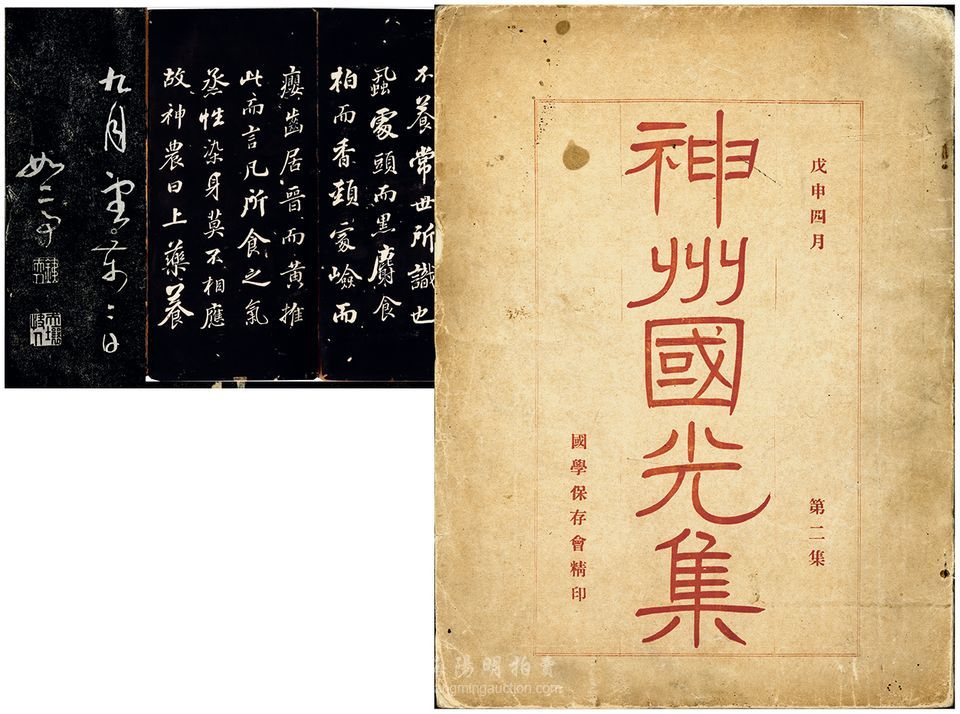 戊申四月
第二集
神州國光集
國學保存會精印
不養常世所識也
蝨處頭而黑麝食
柏而香頸處嶮而
癭齒居晉而黃推
此而言凡所食之氣
蒸性染身莫不相應
故神農曰上藥養
九月
陽明拍賣
ngmingauction.com